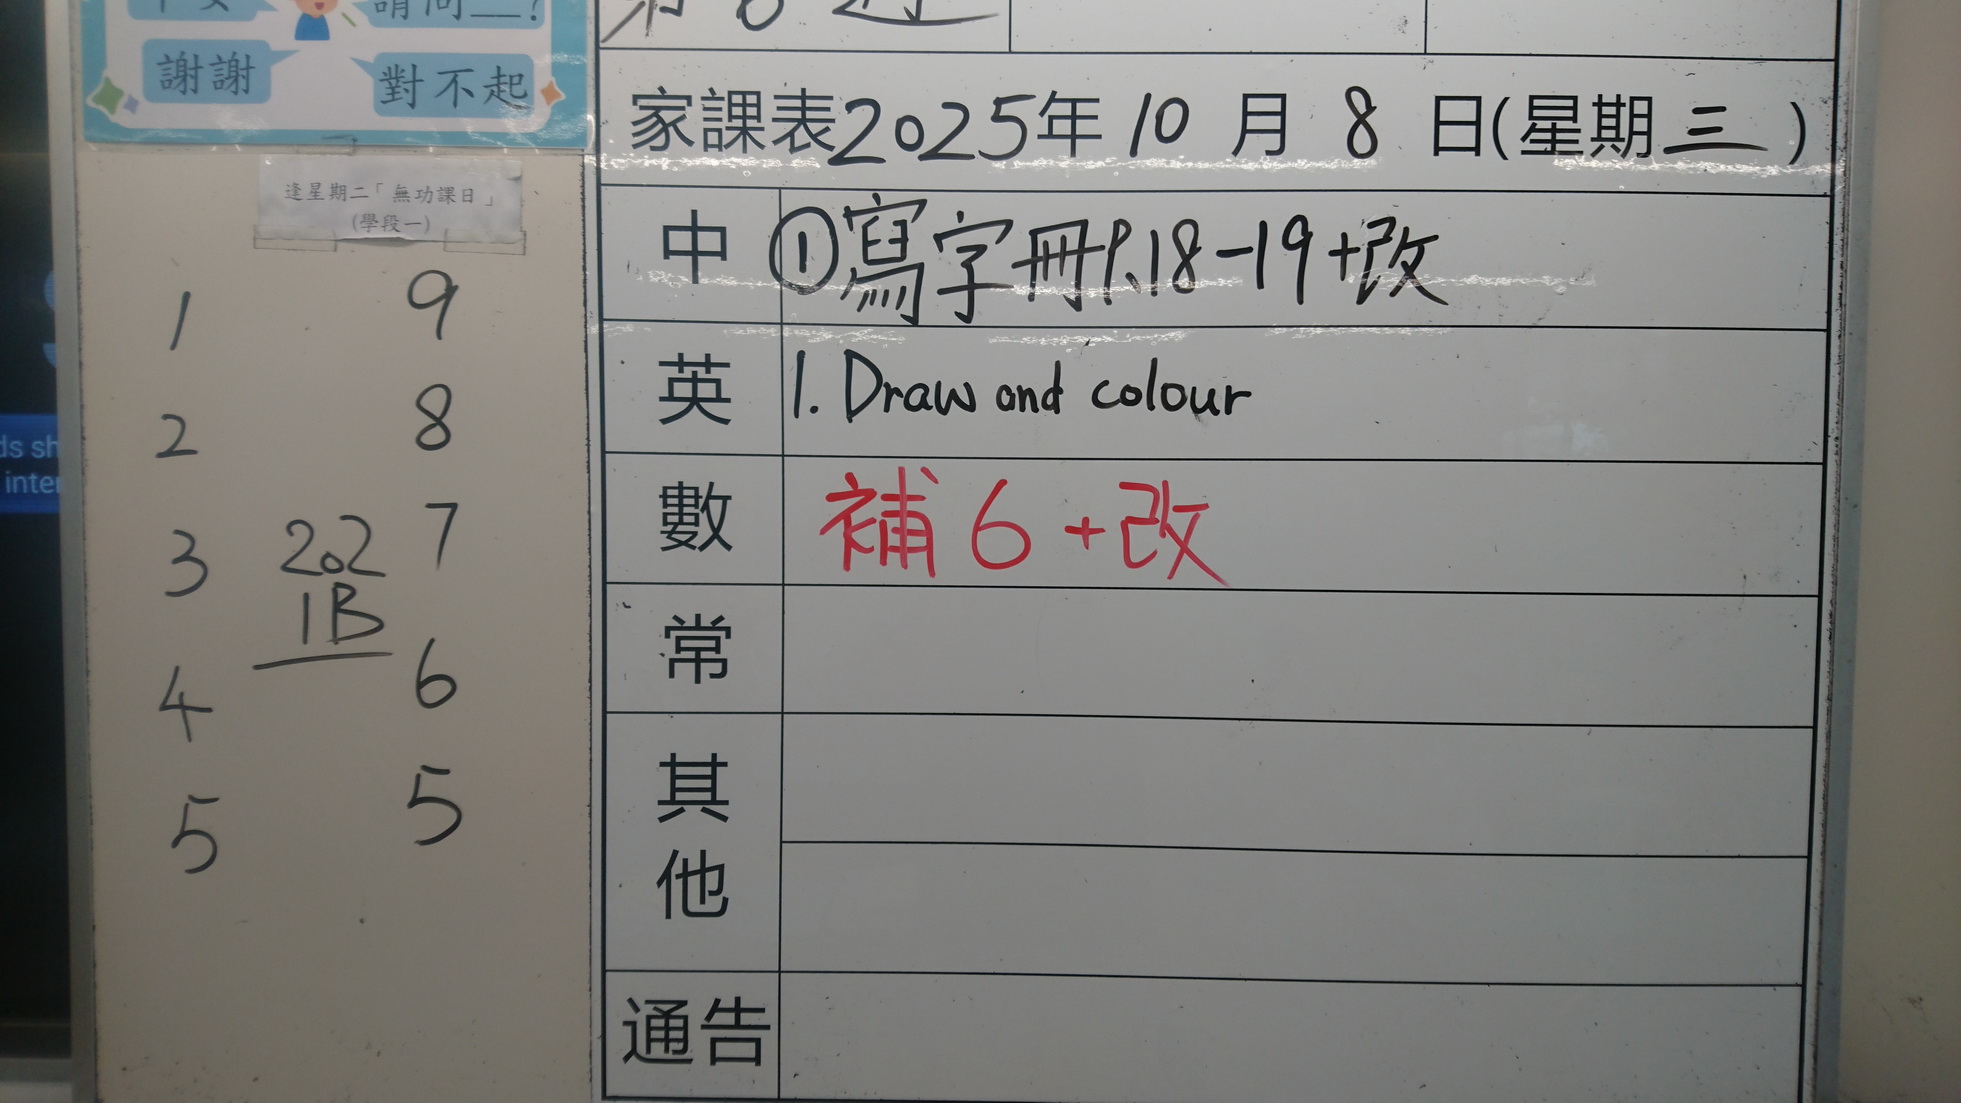 請問__?
謝謝
對不起
逢星期二「無功課日」
(學段一)
1
2
3
4
5
9
8
7
6
5
202
1B
第6週
家課表2025年10月8日(星期三)
中
①寫字冊P.18-19+改
英
1. Draw and colour
數
補6+改
常
其他
通告
inter